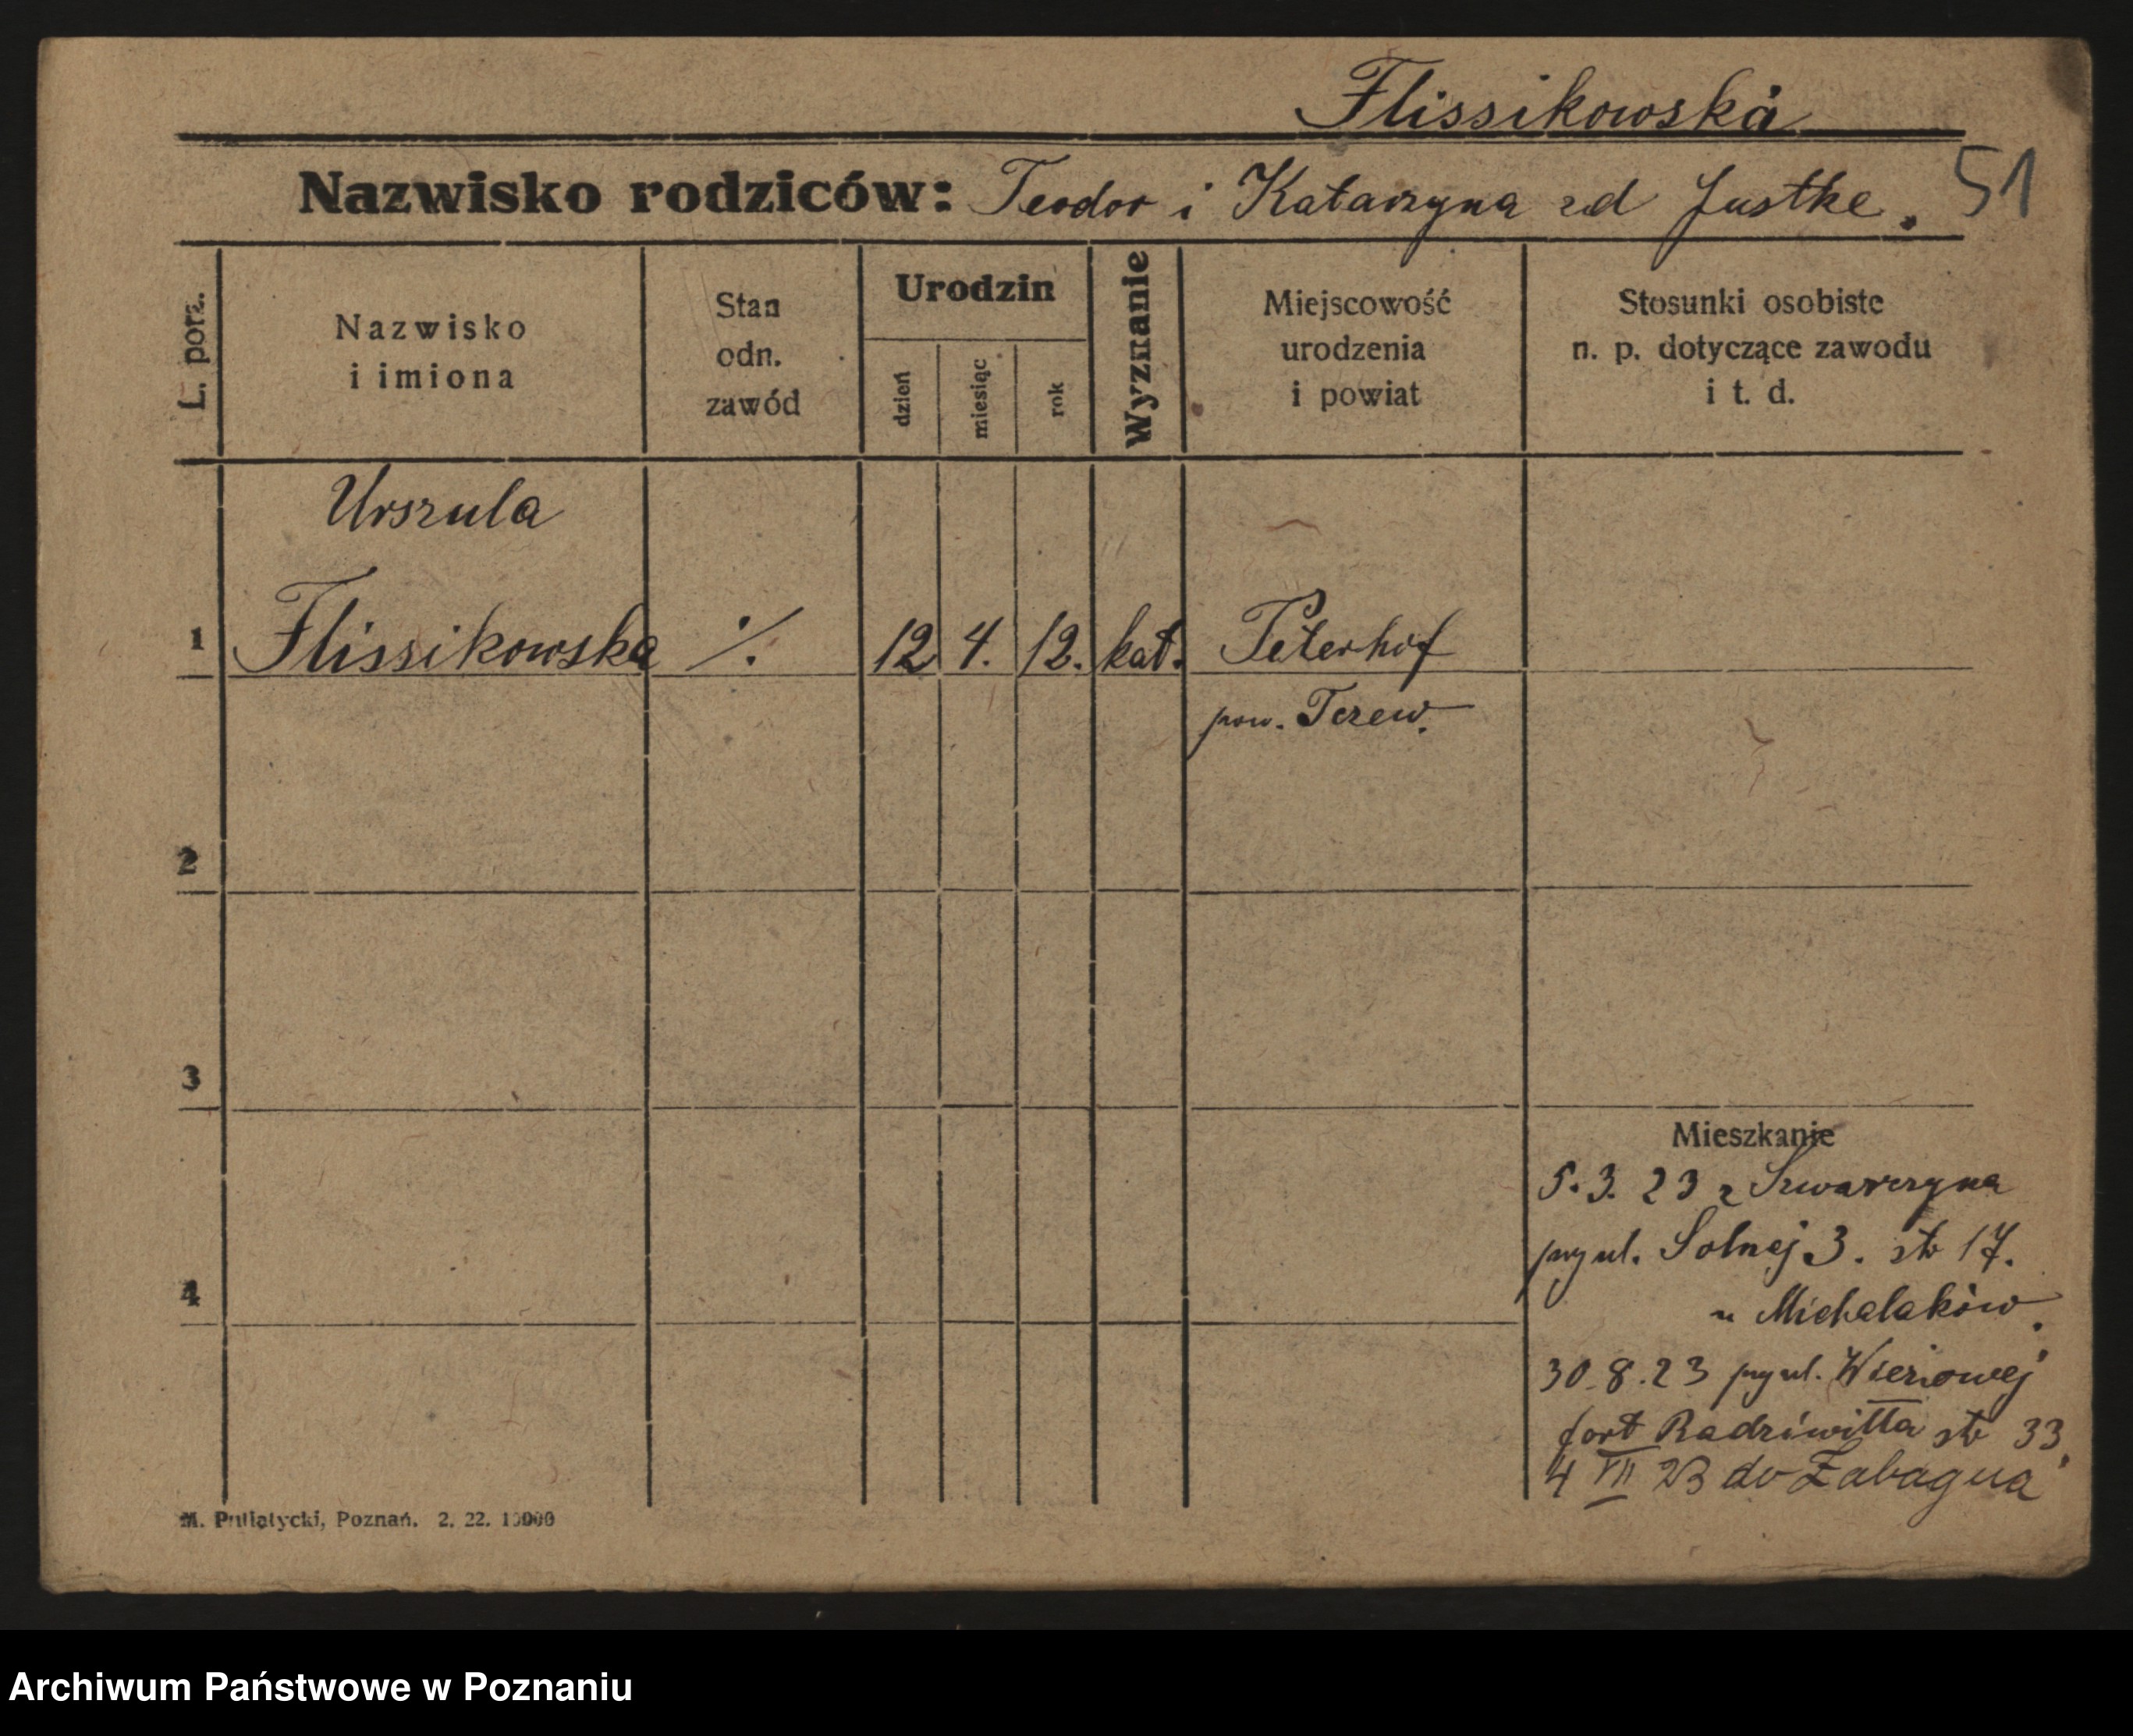 Flissikowska
51
Nazwisko rodziców: Teodor i Katarzyna zd Justke.
L. porz.
Nazwisko
i imiona
Stan
odn.
zawód
Urodzin
dzień
miesiąc
rok
Wyznanie
Miejscowość
urodzenia
i powiat
Stosunki osobiste
n. p. dotyczące zawodu
i t. d.
Urszula
1 Flissikowska ./. 12 4. 12. kat. Peterhof
pow. Tczew.
2
3
Mieszkanie
5. 3. 23 z Szwarzyna
przy ul. Solnej 3. str 17.
4
u Michalaków.
30.8.23 przy ul. Wieżowej
fort Radziwiłła str 33.
4 VII 23 do Żabagna
M. Putiatycki, Poznań. 2. 22. 10000
Archiwum Państwowe w Poznaniu